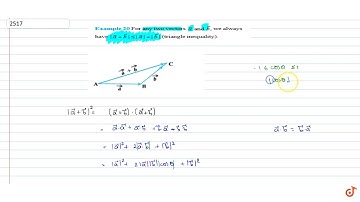 2517
Example 20 For any two vectors a⃗ and b⃗, we always
have |a⃗ + b⃗| ≤ |a⃗| + |b⃗| (triangle inequality)
C
a⃗ + b⃗
b⃗
A
a⃗
B
-1 ≤ cosθ ≤ 1
|cosθ|
|a⃗+b⃗|² = (a⃗+b⃗)·(a⃗+b⃗)
= a⃗·a⃗ + a⃗·b⃗ + b⃗·a⃗ + b⃗·b⃗
a⃗·b⃗ = b⃗·a⃗
= |a⃗|² + 2a⃗·b⃗ + |b⃗|²
= |a⃗|² + 2|a⃗||b⃗|cosθ + |b⃗|²